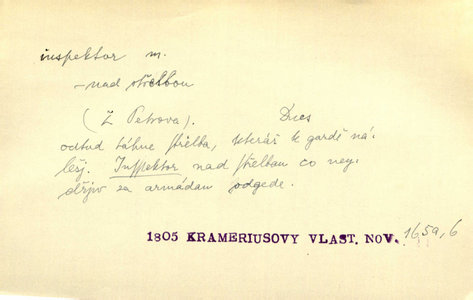 inspektor m.
– nad střelbou
(Z Petrova). Dnes
odtud táhne střelba, kteráž k gardě ná-
leží. Inspektor nad střelbau co ney-
dřjv za armádau odgede.
1805 KRAMERIUSOVY VLAST. NOV. 1659, 6